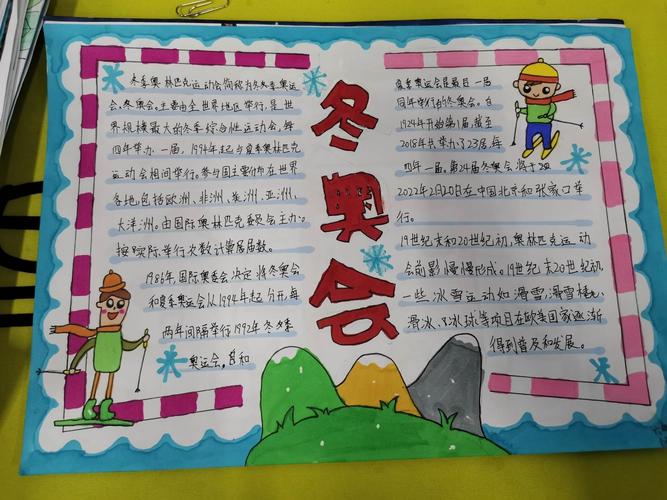 冬奥会
冬季奥林匹克运动会简称为冬季奥运
会,冬奥会。主要由全世界地区举行,是世
界规模最大的冬季综合性运动会,每
四年举办一届,1994年起与夏季奥林匹克
运动会相间举行。参与国主要分布在世界
各地,包括欧洲、非洲、美洲、亚洲、
大洋洲。由国际奥林匹克委员会主办。
按实际举行次数计算届数。
1986年,国际奥委会决定将冬奥会
和夏季奥运会从1994年起分开,每
两年间隔举行1992年冬季
奥运会。
夏季奥运会是最后一届
同年举行的冬奥会。自
1924年开始第1届,截至
2018年共举办了23届,每
四年一届。第24届冬奥会
2022年2月20日在中国北京和张家口举
行。
19世纪末和20世纪初,奥林匹克运动
会前影慢慢形成。19世纪末20世纪初
一些冰雪运动如滑雪,滑雪
滑冰、冰球等项目在欧美国家逐渐
得到普及和发展。